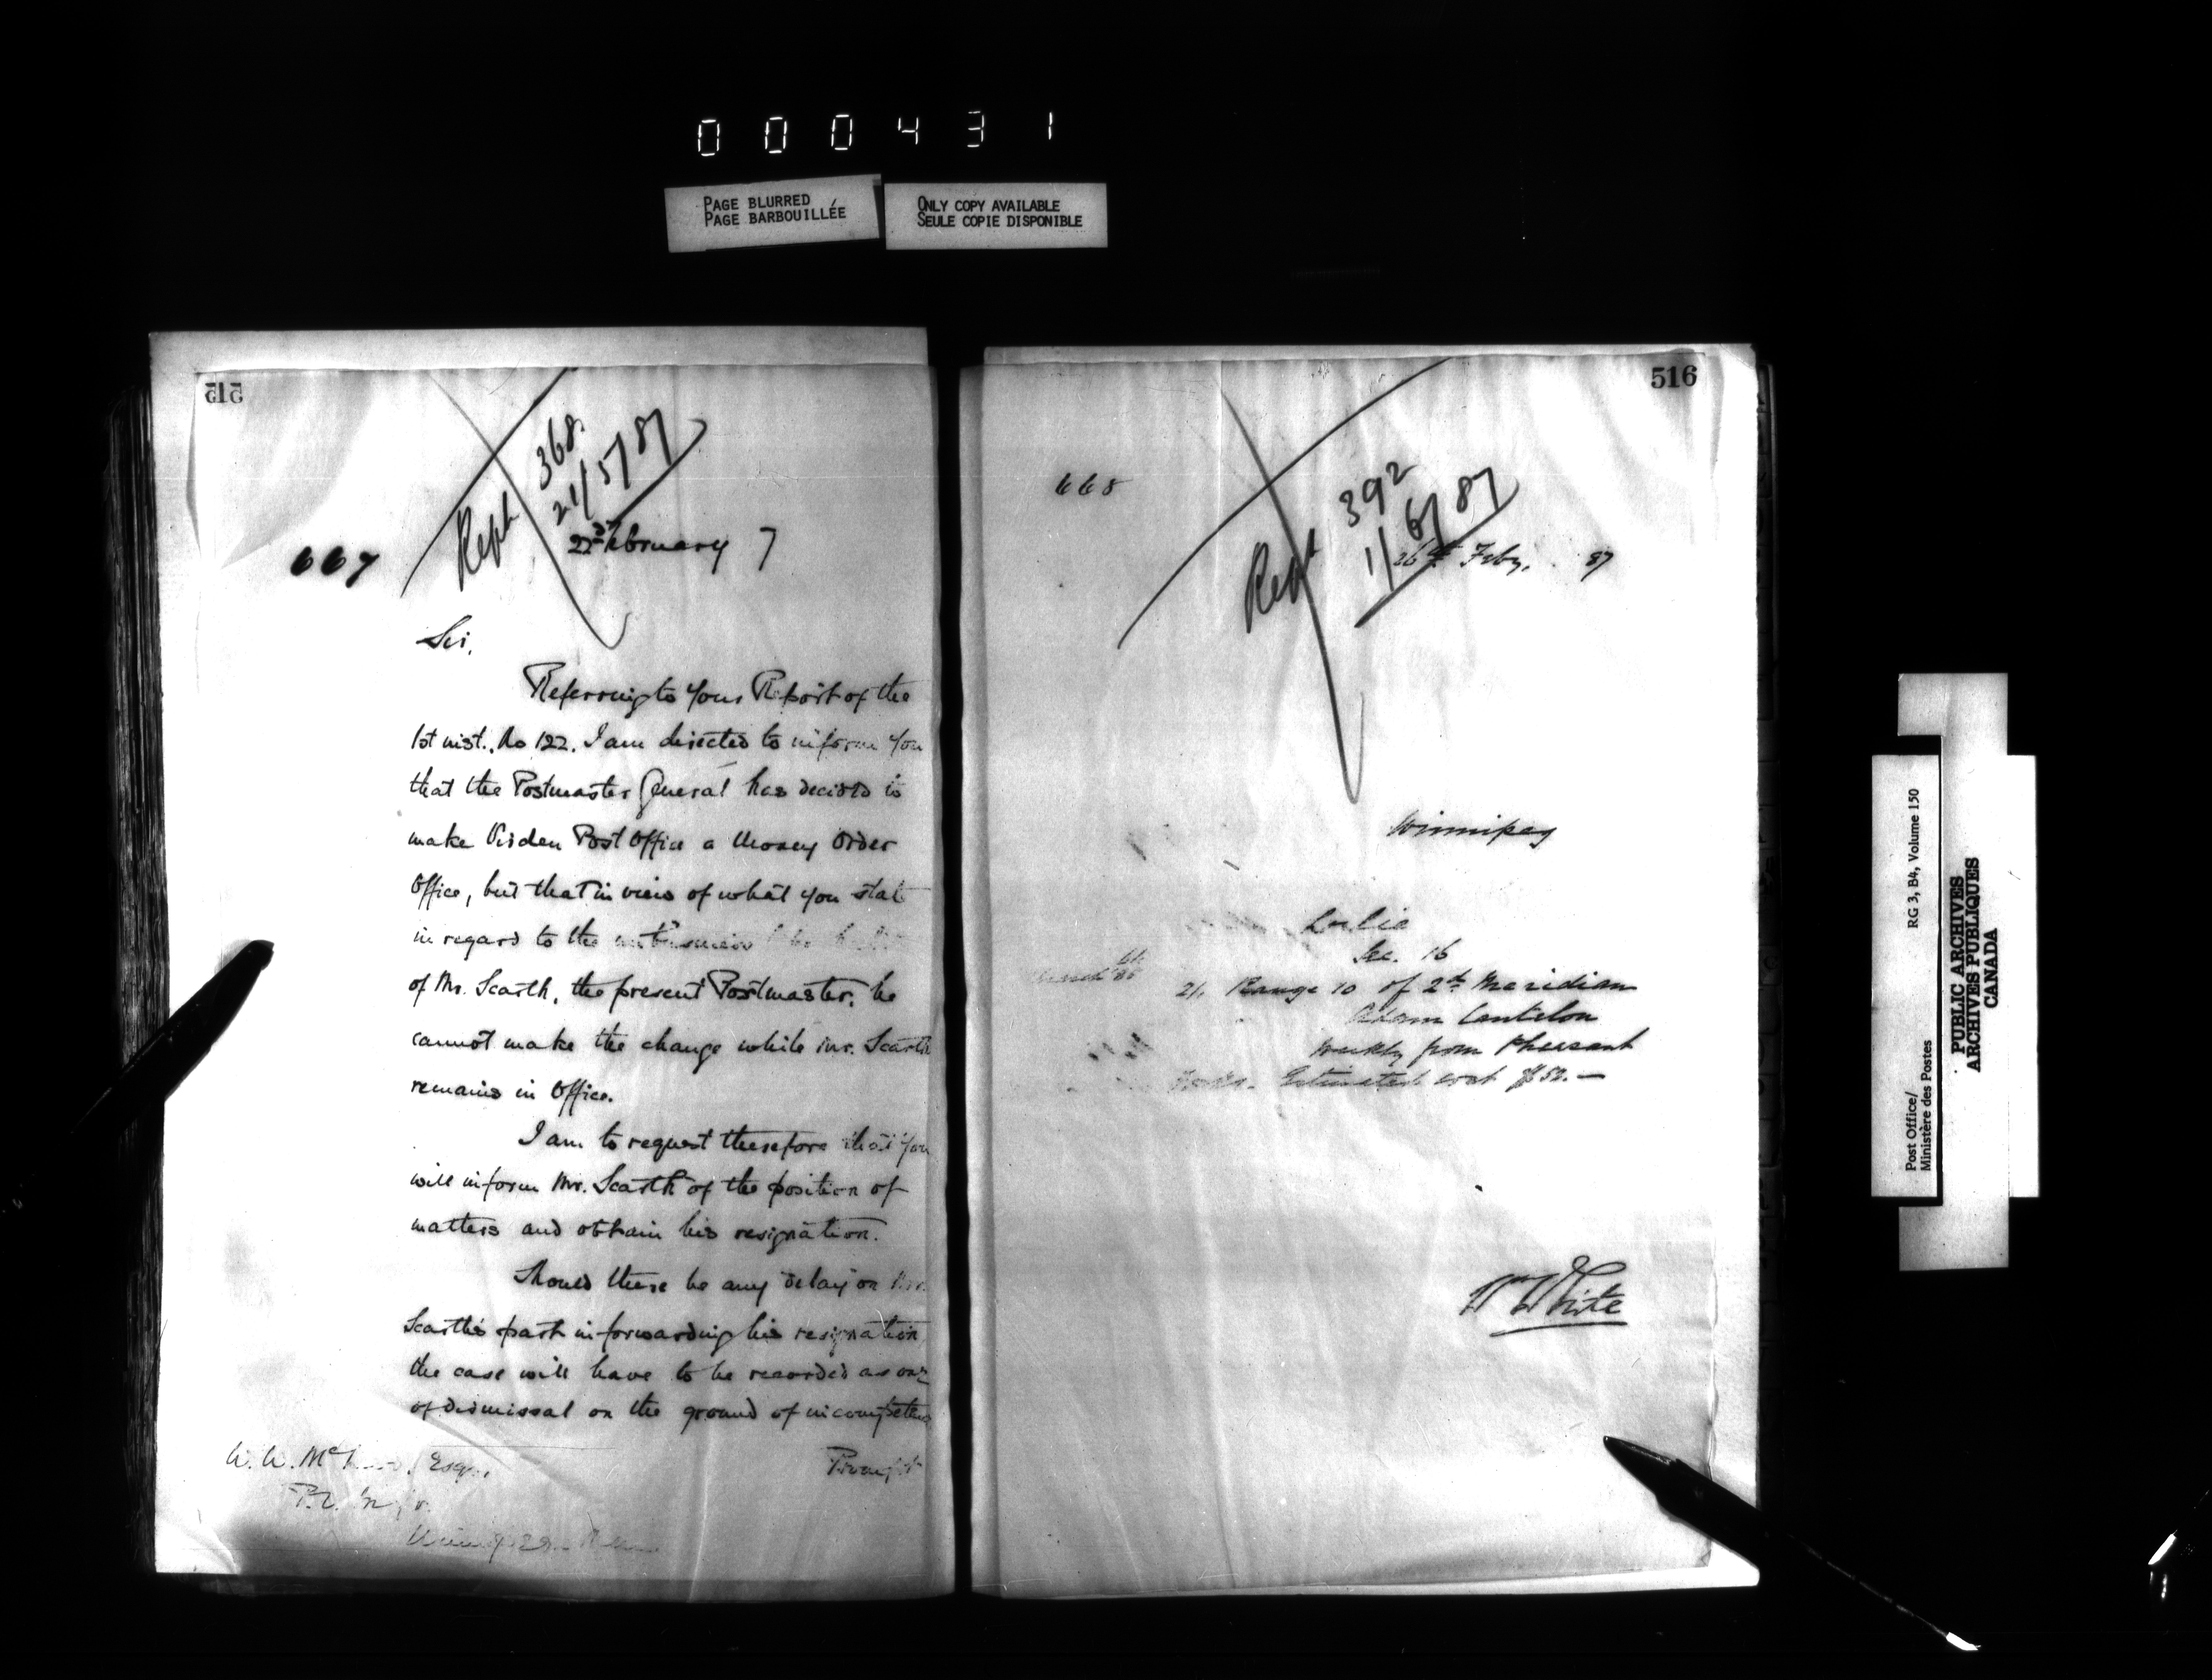 000431
PAGE BLURRED
PAGE BARBOUILLÉE
ONLY COPY AVAILABLE
SEULE COPIE DISPONIBLE
515
Reph 368.
21/5/87
667
22nd February 7
Sir,
Referring to your Report of the
1st inst., No 122. I am directed to inform you
that the Postmaster General has decided to
make Virden Post Office a Money Order
Office, but that in view of what you state
in regard to the
of Mr. Scarth, the present Postmaster, he
cannot make the change while Mr. Scarth
remains in Office.
I am to request therefore that you
will inform Mr. Scarth of the position of
matters and obtain his resignation.
Should there be any delay on Mr.
Scarth's part in forwarding his resignation
the case will have to be recorded as one
of dismissal on the ground of incompetence
W. W. Esq.,
P.O.
516
668
Reph 392
1/6/87
26th Feby. 87
Winnipeg
Leslie
Sec. 16
21, Range 10 of 2nd Meridian
Adam Cantelon
Weekly from Pheasant
Forks. Estimated cost $52.—
Wm White
Post Office/
Ministère des Postes
RG 3, B4, Volume 150
PUBLIC ARCHIVES
ARCHIVES PUBLIQUES
CANADA